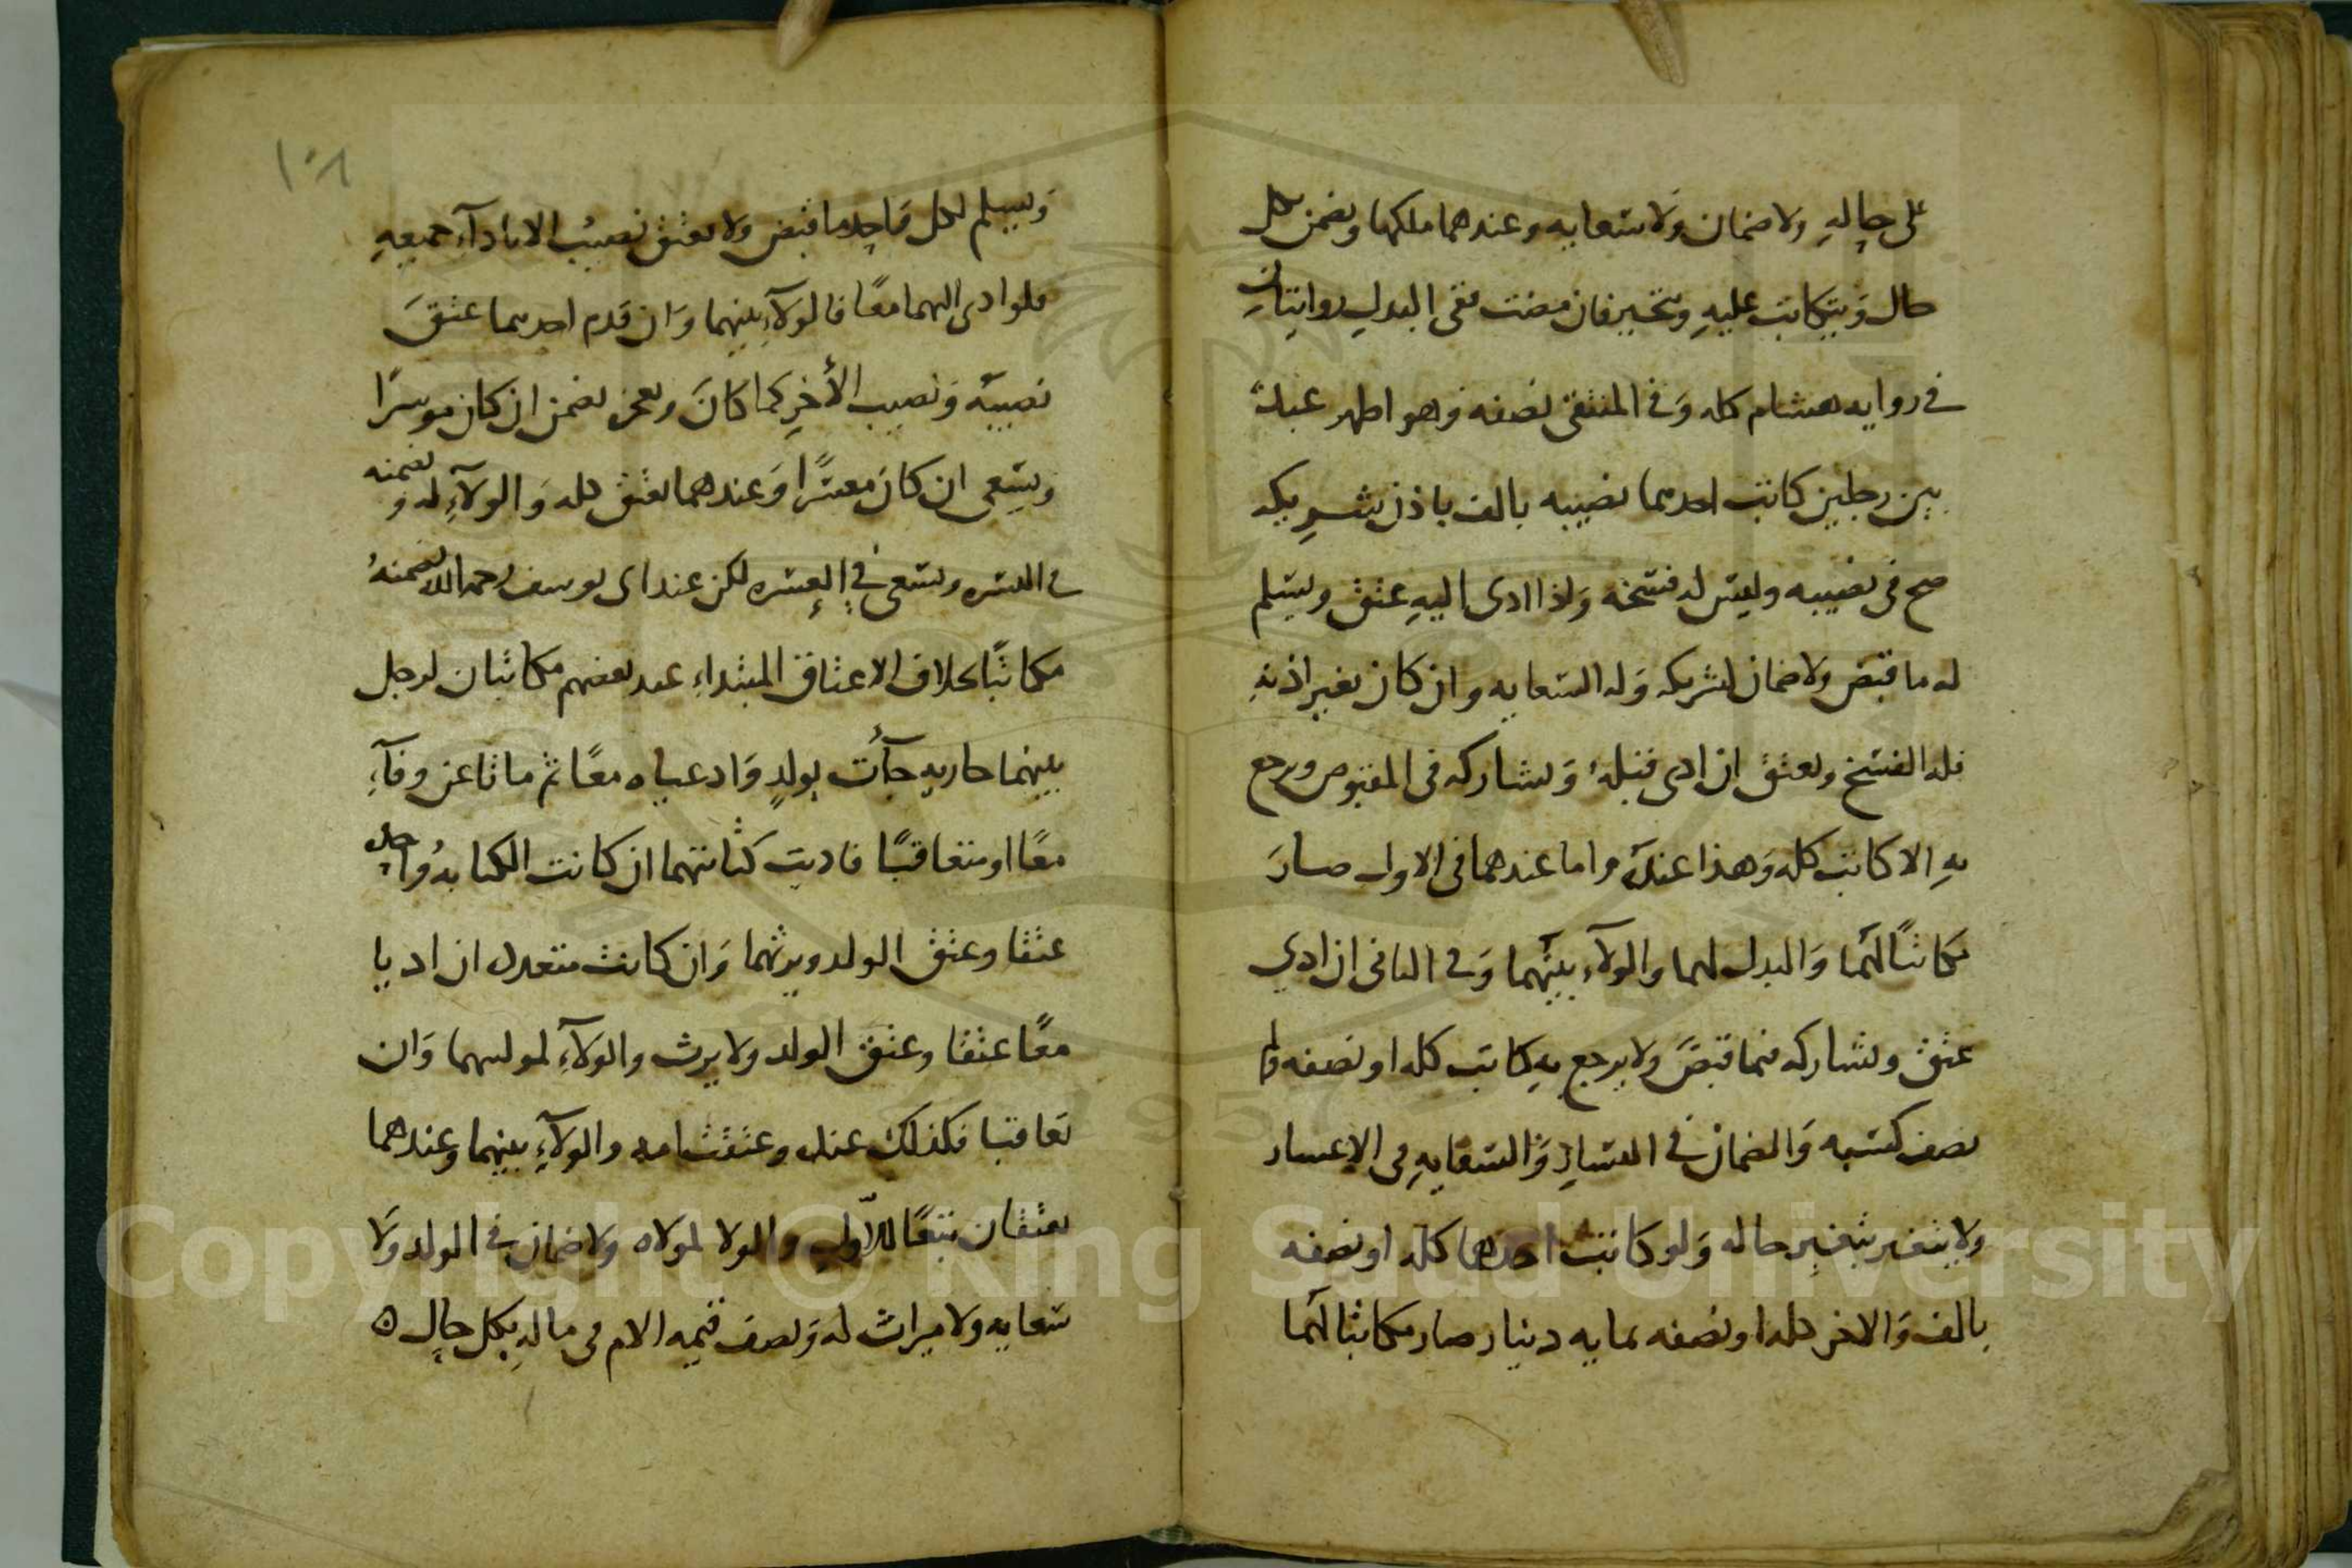 على حاله ولا ضمان ولا سعايه وعندهما ملكها ويضمن كل
حال ويكاتب عليه ويتخير فان مضت ففى البدل روايتان
فى روايه هشام كله وفى المنتقى نصفه وهو اظهر عبد
بين رجلين كاتب احدهما نصيبه بالف باذن شريكه
صح فى نصيبه وليس له فسخه واذا ادى اليه عتق ويسلم
له ما قبض ولا ضمان لشريكه وله السعايه وان كان بغير اذنه
فله الفسخ ويعتق ان ادى قبله ويشاركه فى المقبوض ويرجع
به الا كاتب كله وهذا عنده واما عندهما فى الاول صار
مكاتبًا لهما والبدل لهما والولآء بينهما وفى الثانى ان ادى
عتق ويشاركه فيما قبض ولا يرجع به كاتب كله او نصفه وله
نصف كسبه والضمان فى اليسار والسعايه فى الاعسار
ولا يتغير بتغير حاله ولو كاتب احدهما كله او نصفه
بالف والاخر كله او نصفه بمايه دينار صار مكاتبا لهما
١٠٨
ويسلم لكل واحد ما قبض ولا يعتق نصيب الا بادآء جميعه
فلو ادى اليهما معًا فالولآء بينهما وان قدم احدهما عتق
نصيبه ونصيب الأخر كما كان وبعجز يضمن ان كان موسرًا
ويسعى ان كان معسرًا وعندهما يعتق كله والولآء له ويضمنه
فى اليسره ويسعى فى العسره لكن عند ابى يوسف رحمه الله يضمنه
مكاتبًا بخلاف الاعتاق المبتداء عند بعضهم مكاتبان لرجل
بينهما جاريه جآءت بولدٍ وادعياه معًا ثم ماتا عن وفآء
معًا او متعاقبًا فاديت كتابتهما ان كانت الكتابه واحده
عتقا وعتق الولد ويرثهما وان كانت متعدده ان اديا
معًا عتقا وعتق الولد ولا يرث والولآء لموليهما وان
تعاقبا فكذلك عنده وعتقت امه والولآء بينهما وعندهما
يعتقان تبعًا للاول والولا لمولاه ولا ضمان فى الولد ولا
سعايه ولا ميراث له ونصف قيمه الام فى ماله بكل حال ه
Copyright © King Saud University
1957